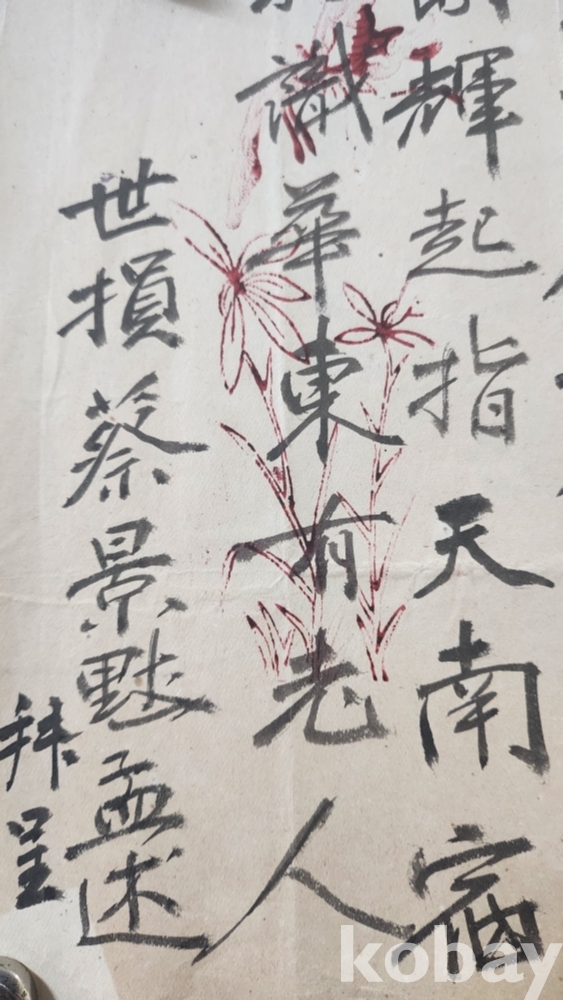 輝起指天南
識華東有老人
世損蔡景黙孟述
拜呈
kobay